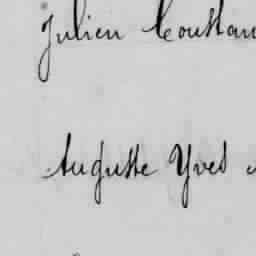 Julien Constan
Auguste Yves